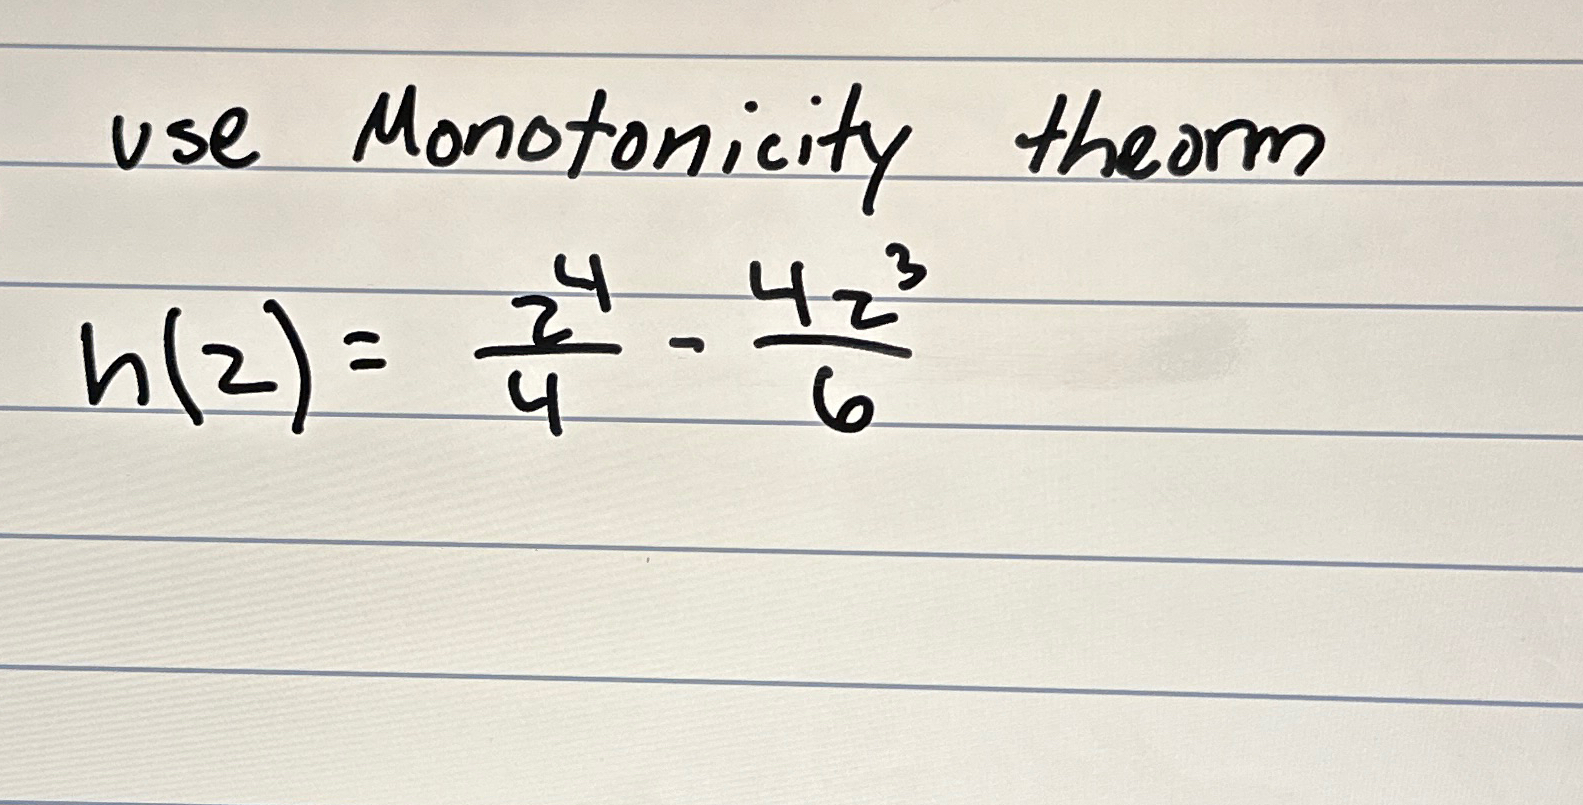 use Monotonicity theorm
h(z) = z^4/4 - 4z^3/6